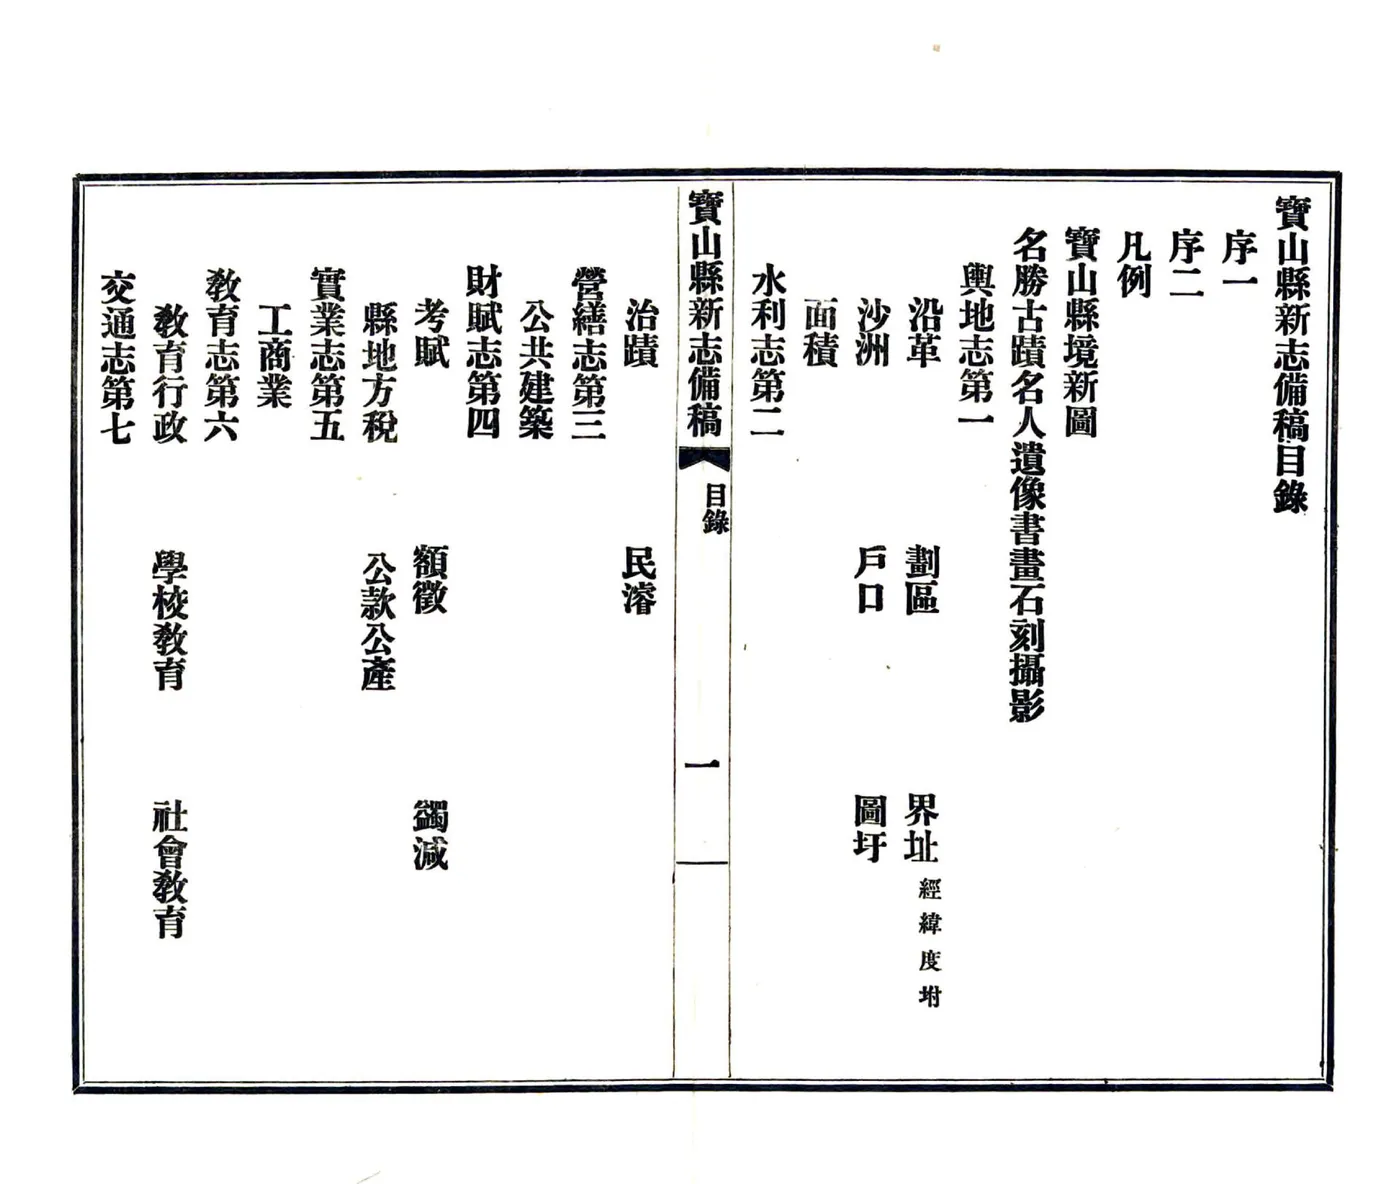 寶山縣新志備稿目錄
序一
序二
凡例
寶山縣境新圖
名勝古蹟名人遺像書畫石刻攝影
輿地志第一
沿革 劃區 界址 經緯度坿
沙洲 戶口 圖圩
面積
水利志第二
寶山縣新志備稿 目錄 一
治蹟 民濬
營繕志第三
公共建築
財賦志第四
考賦 額徵 蠲減
縣地方稅 公款公產
實業志第五
工商業
敎育志第六
敎育行政 學校敎育 社會敎育
交通志第七